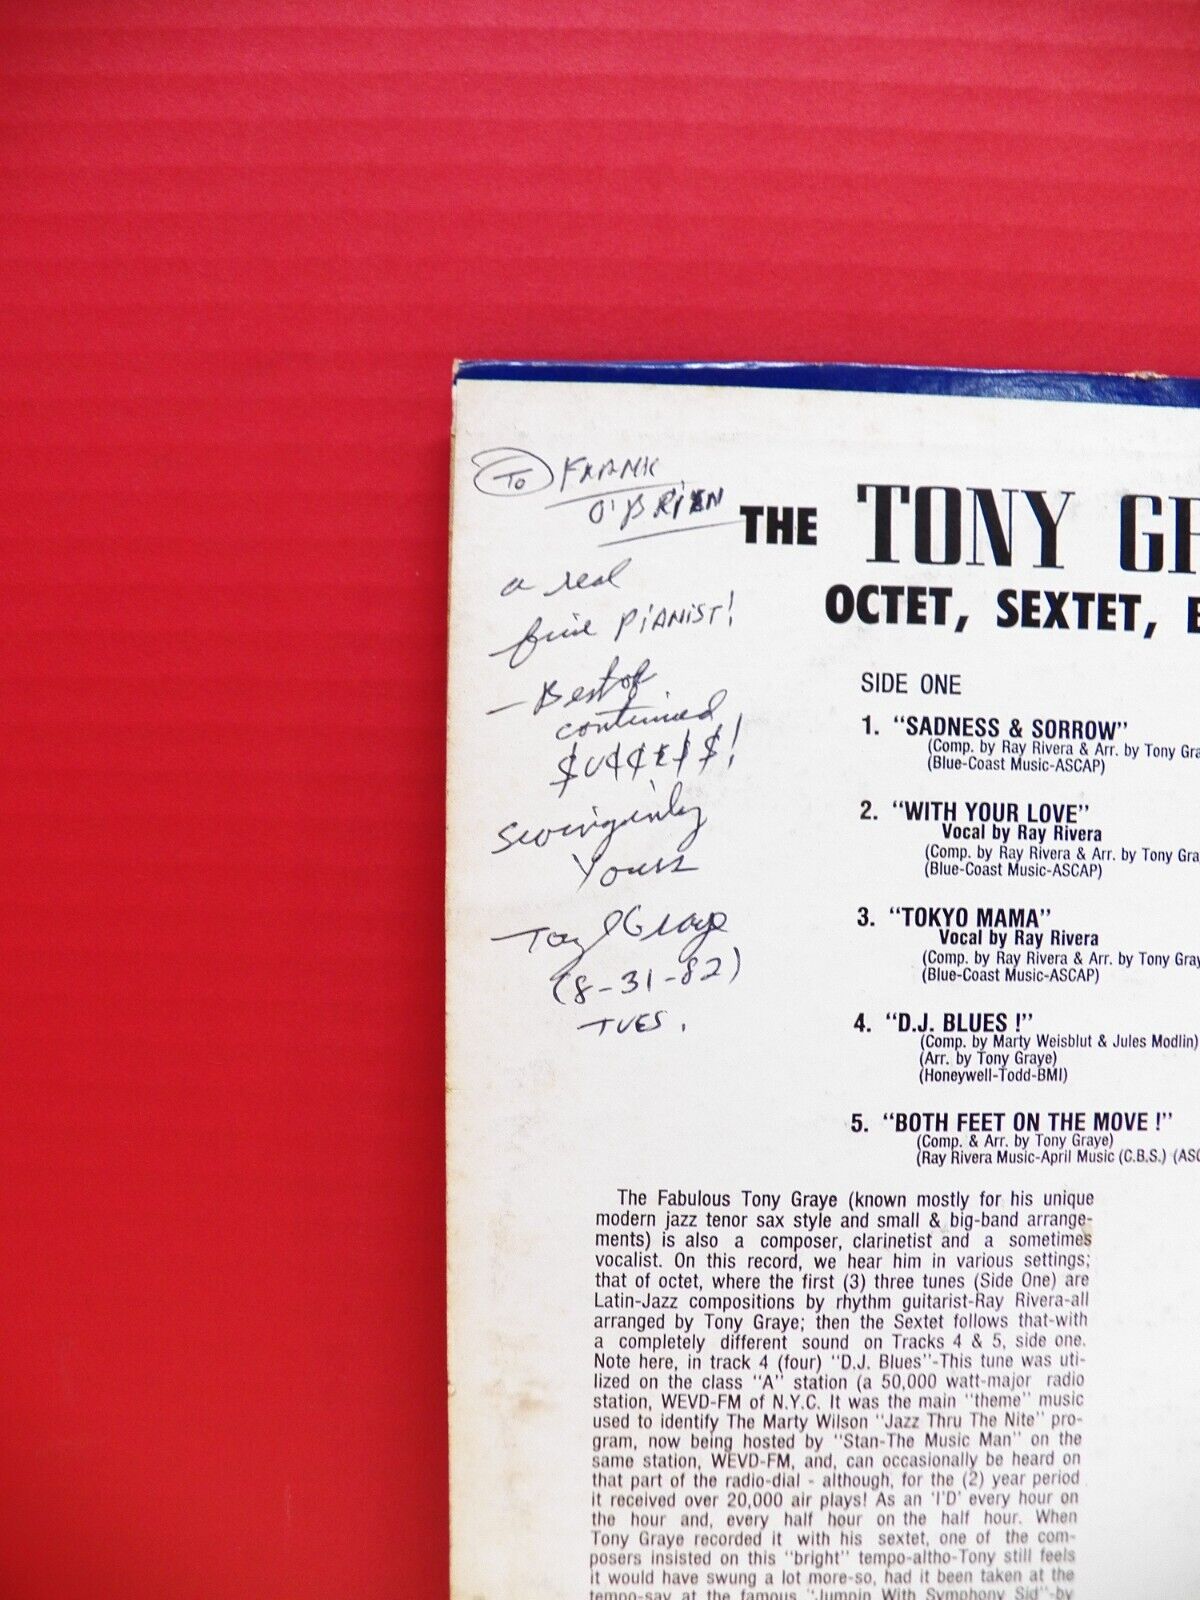 To FRANK
O'BRIEN
a real
fine PiANiST!
— Best of
continued
$U¢¢E$$!
Swingingly
Yours
Tony Graye
(8-31-82)
TUES.
THE TONY GR
OCTET, SEXTET,
SIDE ONE
1. "SADNESS & SORROW"
(Comp. by Ray Rivera & Arr. by Tony Gra
(Blue-Coast Music-ASCAP)
2. "WITH YOUR LOVE"
Vocal by Ray Rivera
(Comp. by Ray Rivera & Arr. by Tony Gra
(Blue-Coast Music-ASCAP)
3. "TOKYO MAMA"
Vocal by Ray Rivera
(Comp. by Ray Rivera & Arr. by Tony Gray
(Blue-Coast Music-ASCAP)
4. "D.J. BLUES !"
(Comp. by Marty Weisblut & Jules Modlin)
(Arr. by Tony Graye)
(Honeywell-Todd-BMI)
5. "BOTH FEET ON THE MOVE !"
(Comp. & Arr. by Tony Graye)
(Ray Rivera Music-April Music (C.B.S.) (ASC
The Fabulous Tony Graye (known mostly for his unique
modern jazz tenor sax style and small & big-band arrange-
ments) is also a composer, clarinetist and a sometimes
vocalist. On this record, we hear him in various settings;
that of octet, where the first (3) three tunes (Side One) are
Latin-Jazz compositions by rhythm guitarist-Ray Rivera-all
arranged by Tony Graye; then the Sextet follows that-with
a completely different sound on Tracks 4 & 5, side one.
Note here, in track 4 (four) "D.J. Blues"-This tune was uti-
lized on the class "A" station (a 50,000 watt-major radio
station, WEVD-FM of N.Y.C. It was the main "theme" music
used to identify The Marty Wilson "Jazz Thru The Nite" pro-
gram, now being hosted by "Stan-The Music Man" on the
same station, WEVD-FM, and, can occasionally be heard on
that part of the radio-dial - although, for the (2) year period
it received over 20,000 air plays! As an 'I'D' every hour on
the hour and, every half hour on the half hour. When
Tony Graye recorded it with his sextet, one of the com-
posers insisted on this "bright" tempo-altho-Tony still feels
it would have swung a lot more-so, had it been taken at the
tempo-say at the famous "Jumpin With Symphony Sid"-by